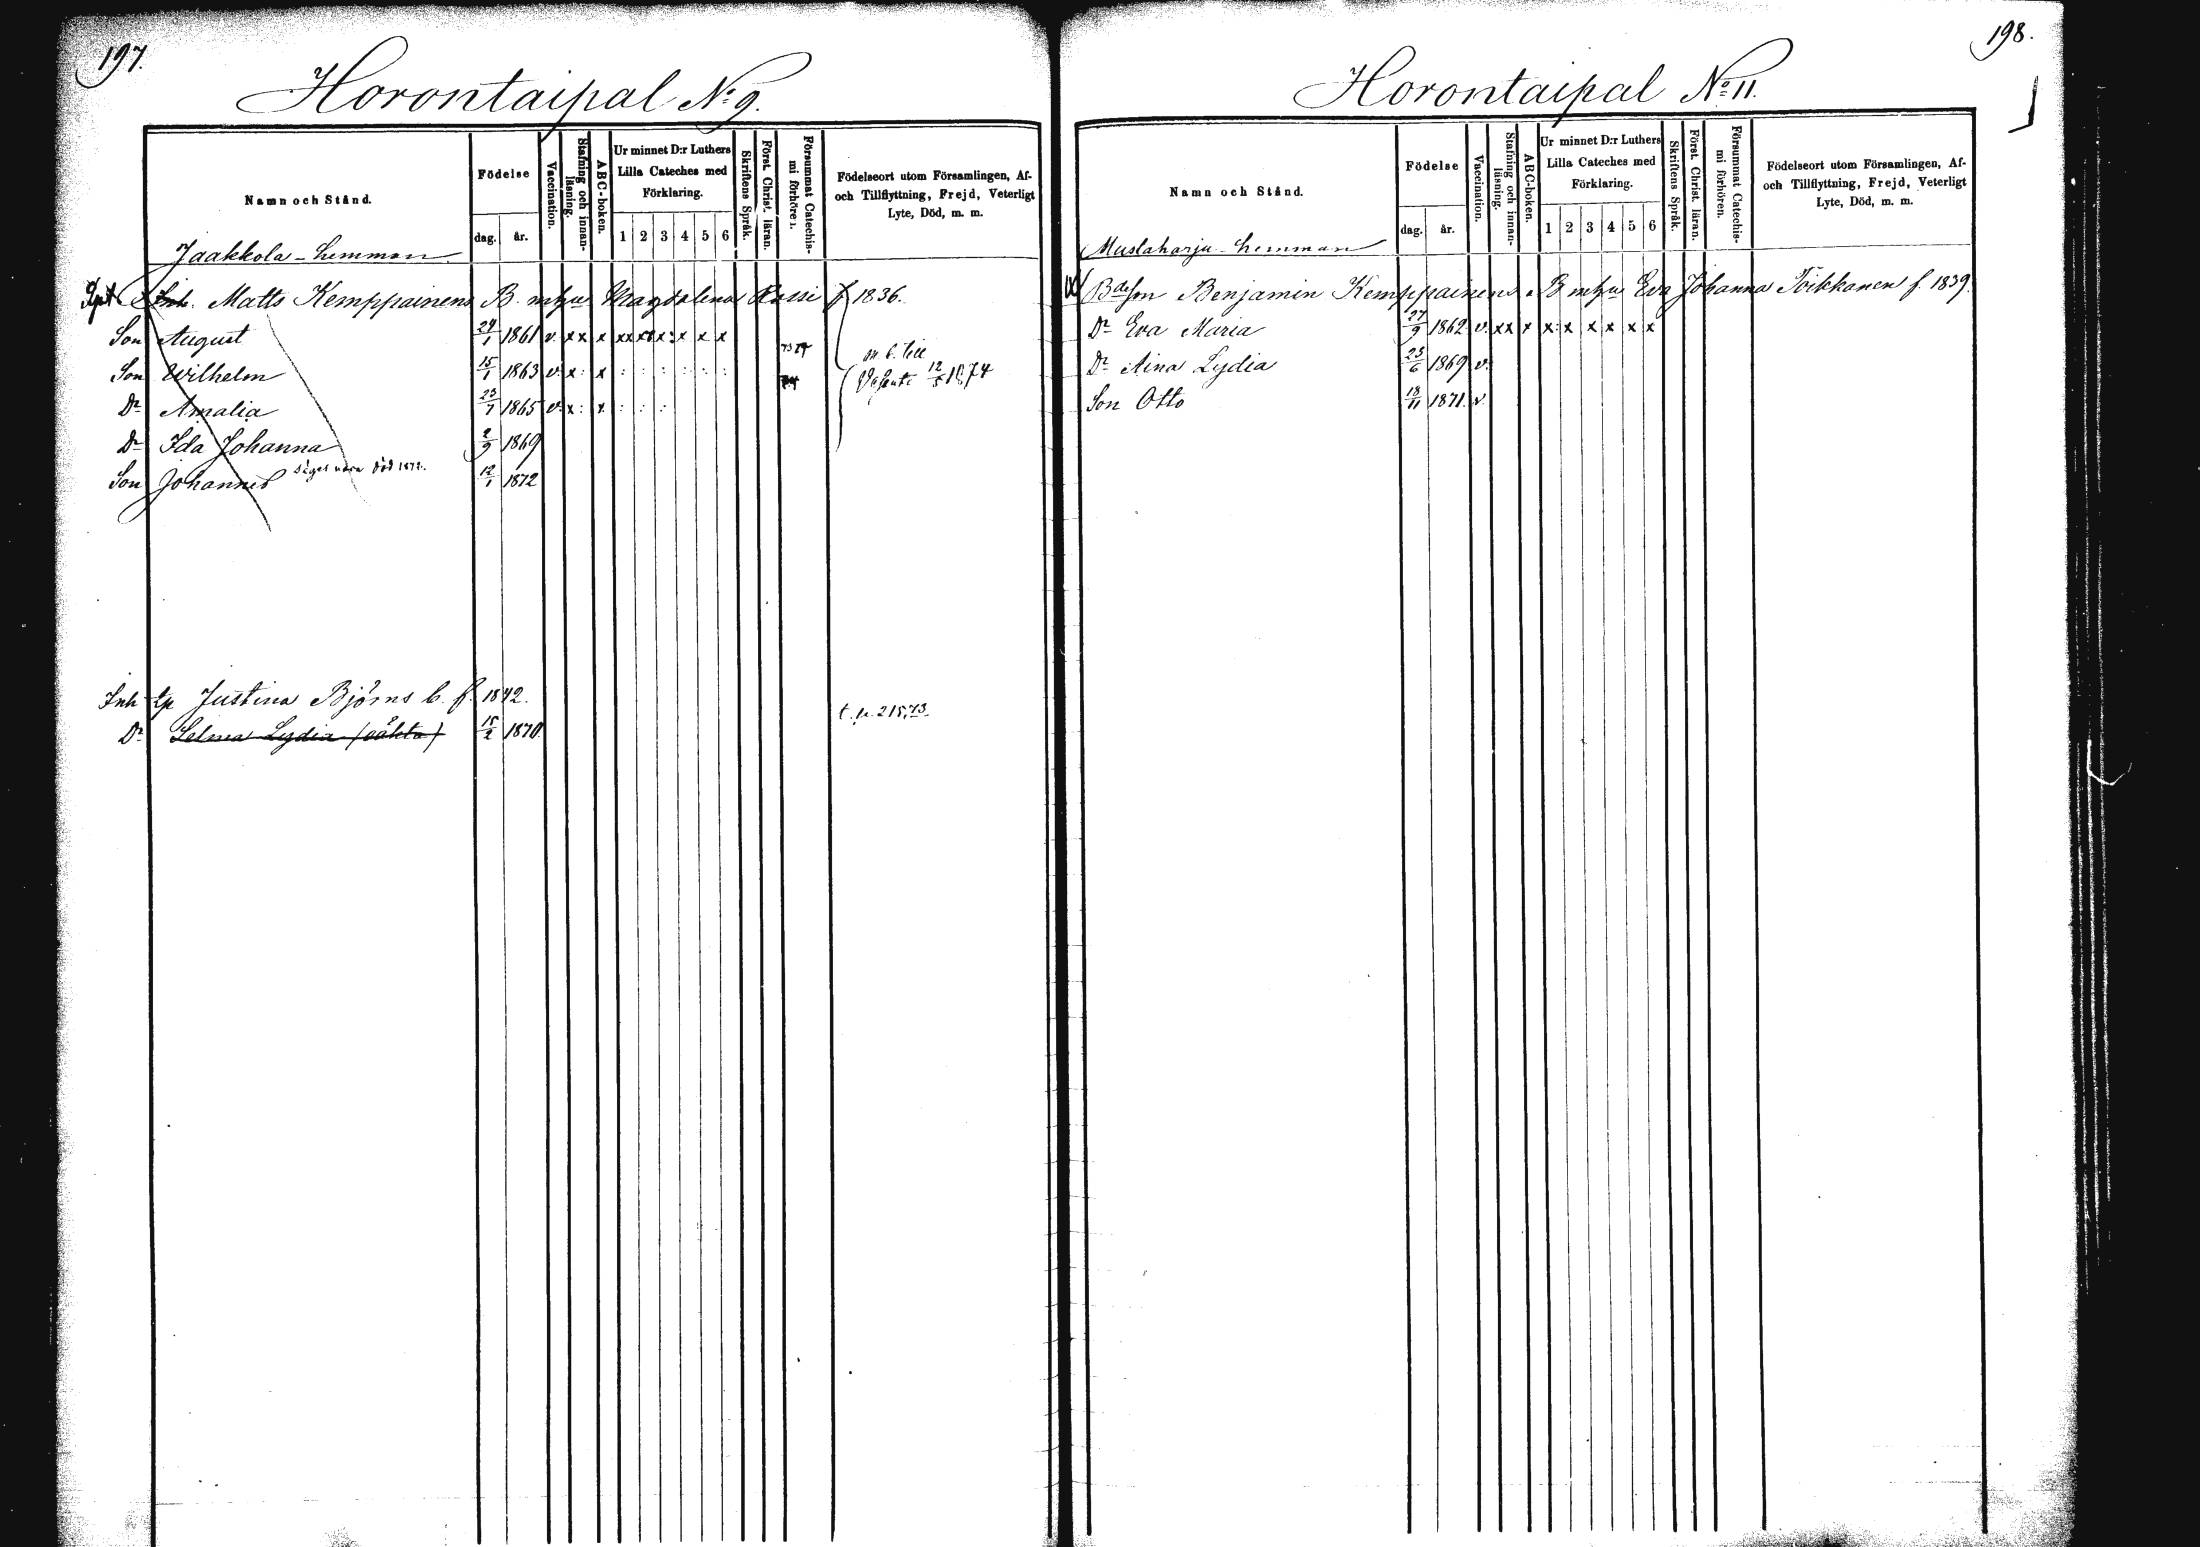 197.
Horontaipal No 9.
Namn och Stånd.
Födelse
dag.
år.
Vaccination.
Stafning och innan-
läsning.
ABC-boken.
Ur minnet D:r Luthers
Lilla Cateches med
Förklaring.
1 2 3 4 5 6
Skriftens Språk.
Först. Christ. läran.
Försummat Catechis-
mi förhören.
Födelseort utom Församlingen, Af-
och Tillflyttning, Frejd, Veterligt
Lyte, Död, m. m.
Jaakkola-hemman
Inh. Matts Kemppainens B. m hu Magdalena Rossi f 1836.
Son August 24/1 1861 v. x x x xx x x x x x
73 74
Son Wilhelm 15/1 1863 v. x: x : : : : : :
m. b. till
12/5 1874
Dr Amalia 23/7 1865 v. x: x : : :
Dr Ida Johanna 2/9 1869
Son Johannes säges vara död 1872. 12/1 1872
Inh tp Justina Björns b. f. 1842.
t. p. 215, 73.
Dr Selma Lydia (oäkta) 15/2 1870.
198.
Horontaipal No 11.
Namn och Stånd.
Födelse
dag.
år.
Vaccination.
Stafning och innan-
läsning.
ABC-boken.
Ur minnet D:r Luthers
Lilla Cateches med
Förklaring.
1 2 3 4 5 6
Skriftens Språk.
Först. Christ. läran.
Försummat Catechis-
mi förhören.
Födelseort utom Församlingen, Af-
och Tillflyttning, Frejd, Veterligt
Lyte, Död, m. m.
Mustaharju-hemman
Bdeson Benjamin Kemppainens B m hu Eva Johanna Toikkanen f. 1839.
Dr Eva Maria 27/9 1862 v. xx x x: x x x x x
Dr Aina Lydia 23/6 1869 v.
Son Otto 18/11 1871. v.